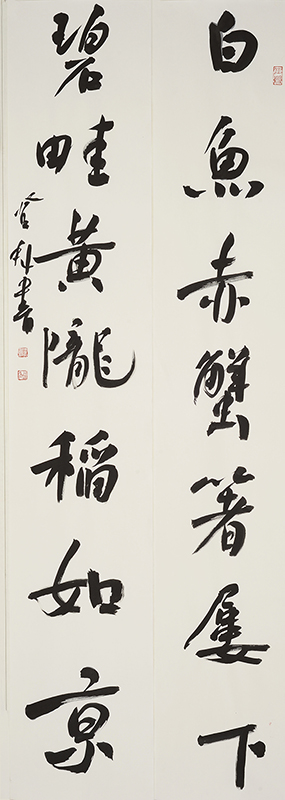 白魚赤蟹箸屢下
碧畦黃隴稻如京
書